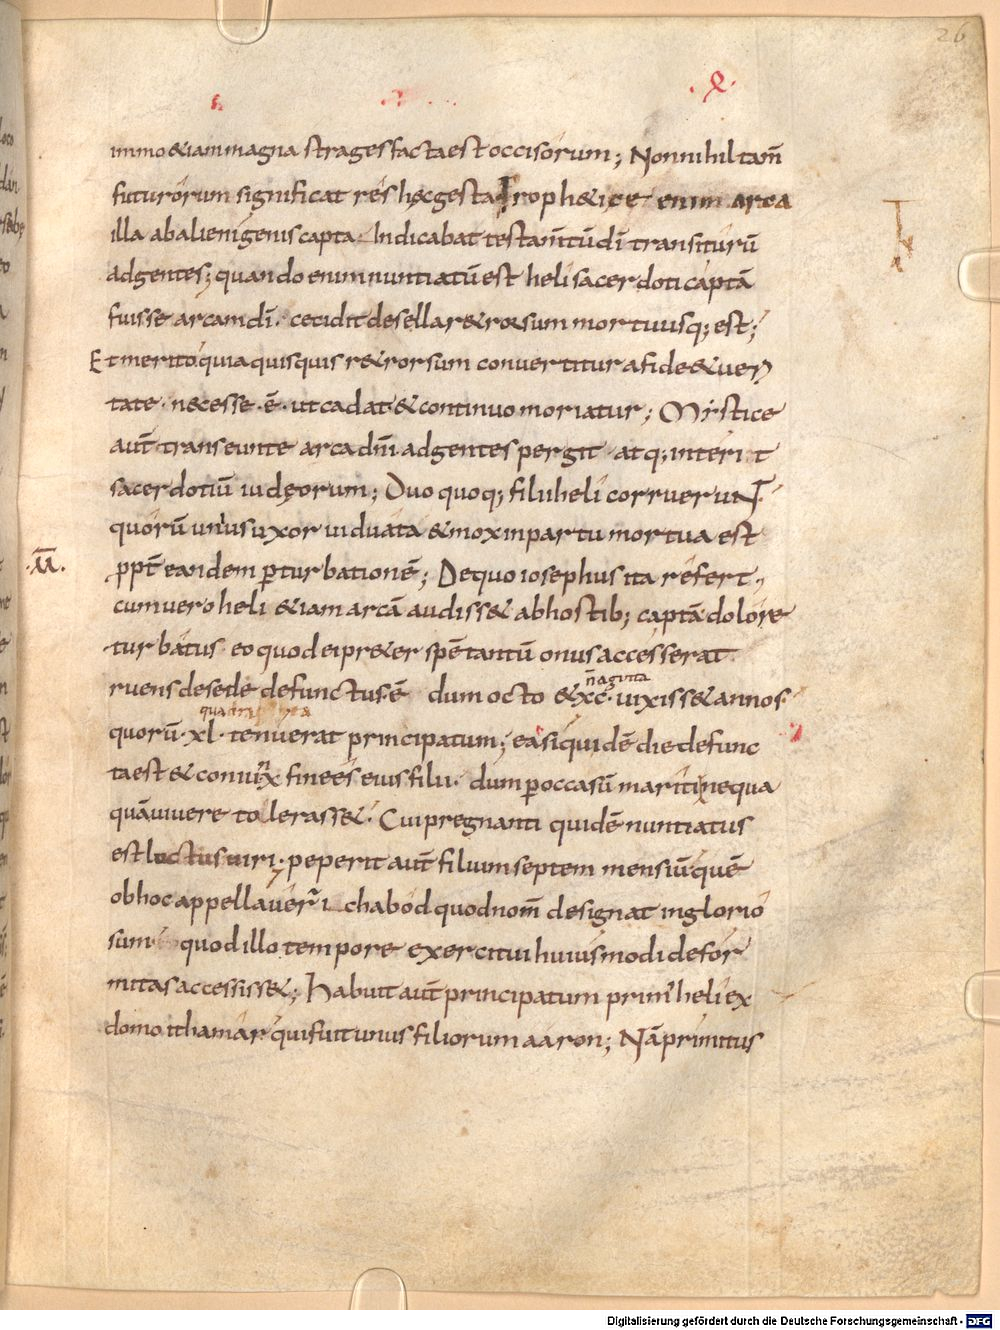 26
·X·
immo &iam magna strages facta est occisorum; Non nihil tam̄
futurorum significat res hęc gesta prophetice t enim arca
illa ab alienigenis capta· Indicabat testam̄tū dī transiturū
ad gentes; quando enim nuntiatū est heli sacerdoti captā
fuisse arcam dī· cecidit de sella r&rorsum mortuusq; est;
Et merito quia quisquis r&rorsum convertitur a fide &ueri
tate· necesse·ē· ut cadat &continuo moriatur; Mystice
aut̄ transeunte arca dnī ad gentes pergit· atq; interi t
sacerdotiū iudęorum; Duo quoq; filii heli corruerunt·
quorū unius uxor uiduata &mox in partu mortua est
·XX·
ppt̄ eandem perturbationē; De quo iosephus ita refert,
cum uero heli &iam arcā audiss& ab hostib; captā dolore
turbatus· eo quod ei pr&er spē tantū onus accesserat·
nāginta
ruens de sede defunctus·ē dum octo &xc· uixiss& annos·
quadraginta
quorū·xl· tenuerat principatum; ea siquidē die defunc
ta est &coniux finees eius filii· dum p occasū mariti nequa
quā uiuere tollerass&· Cui pregnanti quidē nuntiatus
est luctus uiri; peperit aut̄ filium septem mensiū quē
ob hoc appellauer̄ Ichabod quod nom̄ designat inglorio
sum· quod illo tempore exercitui huiusmodi defor
mitas accessiss&; Habuit aut̄ principatum prim' heli ex
domo ithamar qui fuit unus filiorum aaron; Nā primitus
Digitalisierung gefördert durch die Deutsche Forschungsgemeinschaft - DFG